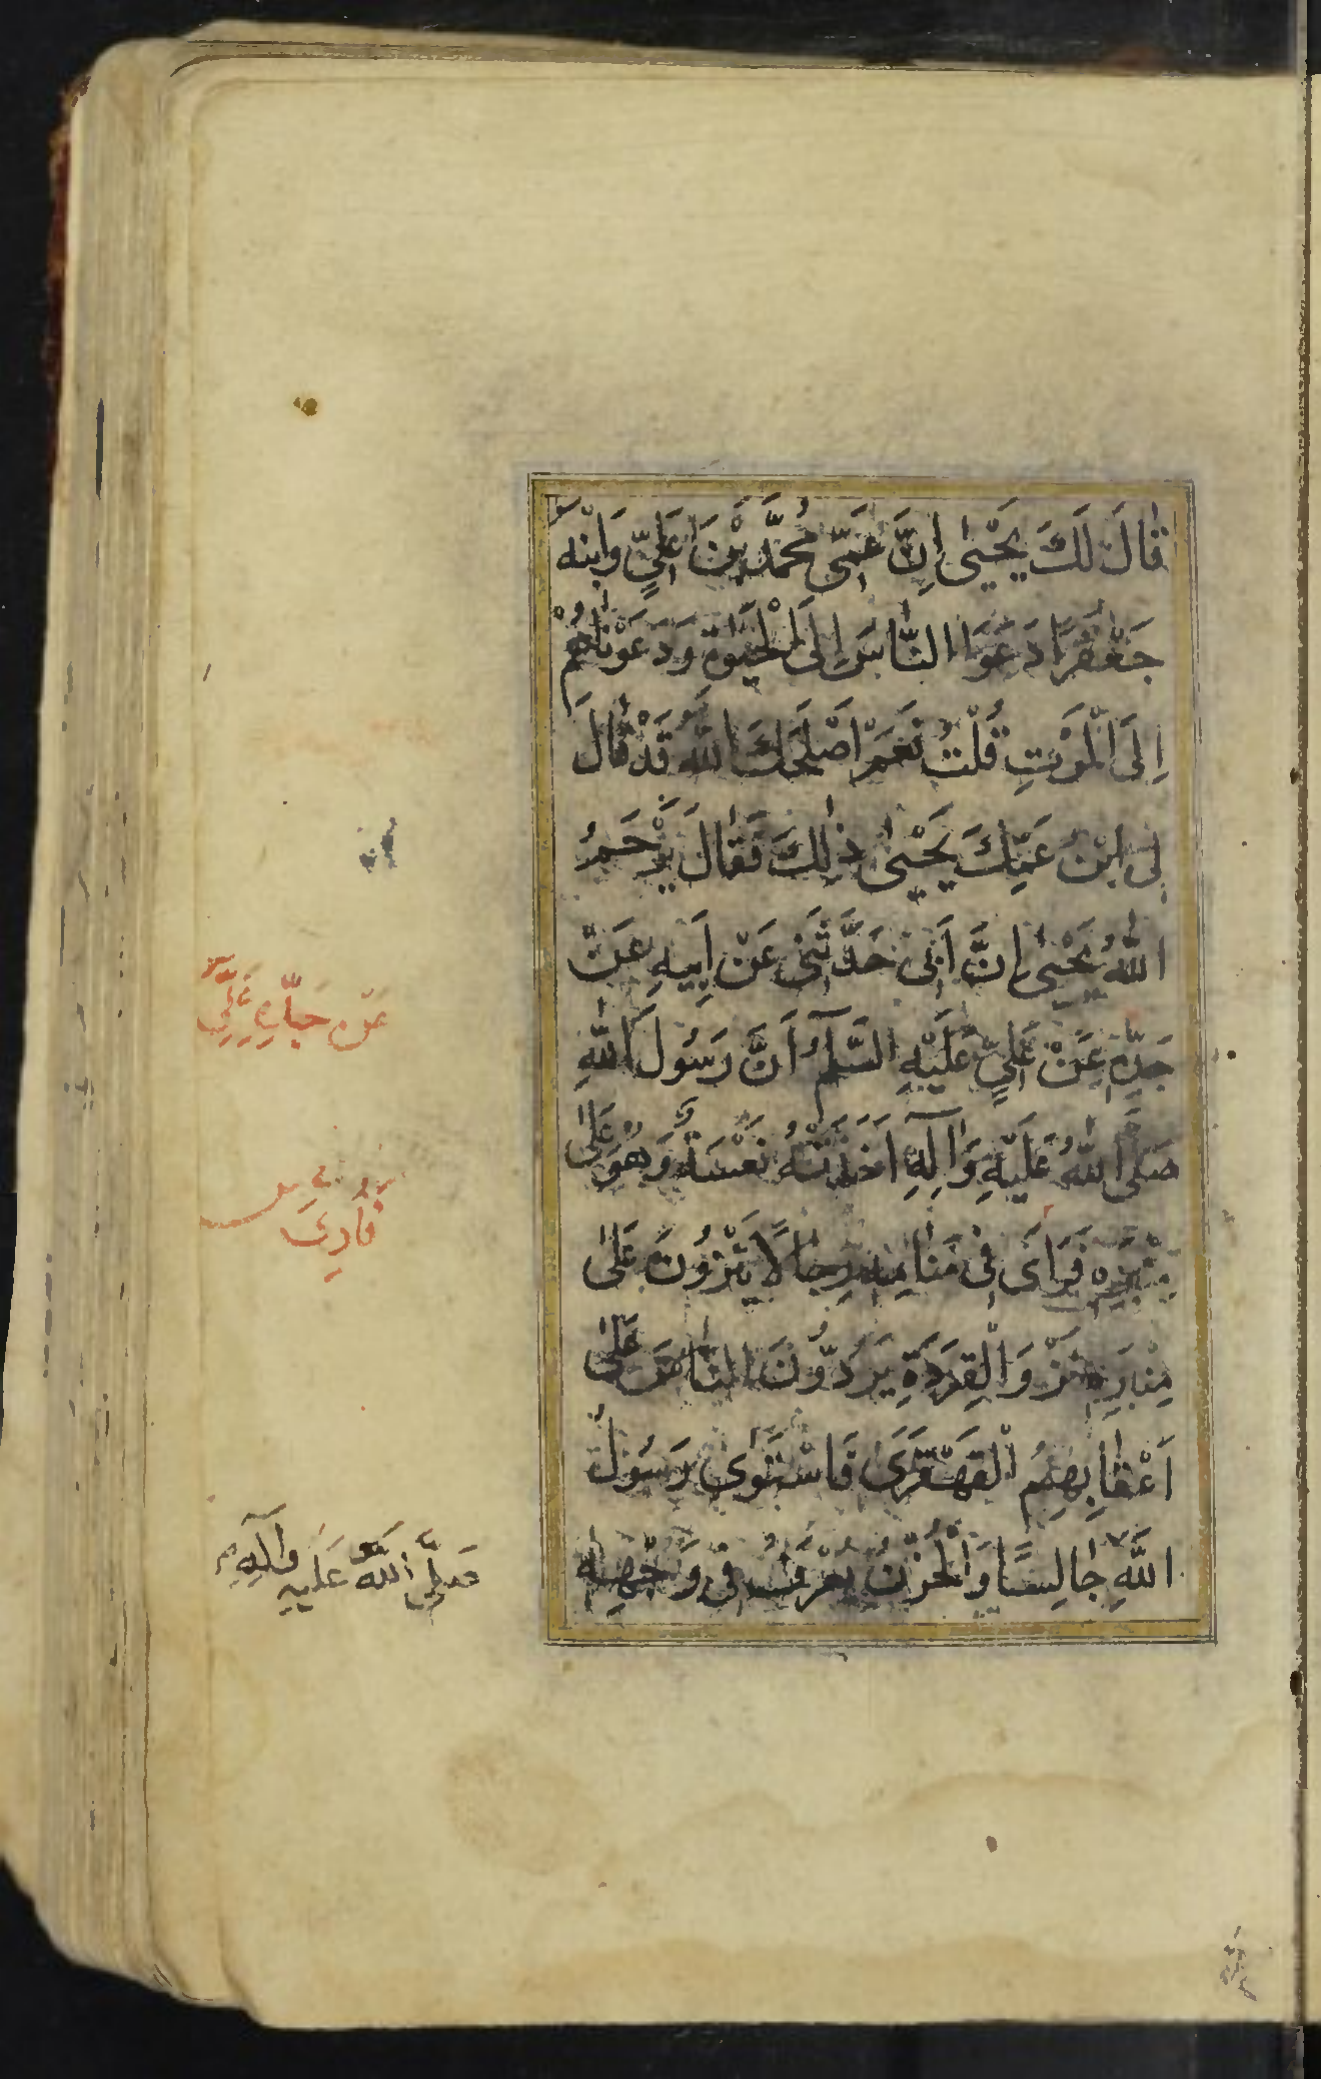 قَالَ لَكَ يَحْيٰى اِنَّ عَمّى مُحَمَّدَ بْنَ عَلِىٍّ وَابْنَهُ
جَعْفَرًا دَعَوَا النَّاسَ اِلَى الْحَيٰوةِ وَدَعَوْنَاهُمْ
اِلَى الْمَوْتِ قُلْتُ نَعَمْ اَصْلَحَكَ اللهُ قَدْ قَالَ
لِى ابْنُ عَمِّكَ يَحْيٰى ذٰلِكَ فَقَالَ يَرْحَمُ
اللهُ يَحْيٰى اِنَّ اَبِى حَدَّثَنِى عَنْ اَبِيهِ عَنْ
جَدِّهِ عَنْ عَلِىٍّ عَلَيْهِ السَّلٰمُ اَنَّ رَسُولَ اللهِ
صَلَّى اللهُ عَلَيْهِ وَاٰلِهِ اَخَذَتْهُ نَعْسَةٌ وَهُوَ عَلٰى
مِنْبَرِهِ فَرَاٰى فِى مَنَامِهِ رِجَالًا يَنْزُونَ عَلٰى
مِنْبَرِهِ نَزْوَ الْقِرَدَةِ يَرُدُّونَ النَّاسَ عَلٰى
اَعْقَابِهِمُ الْقَهْقَرٰى فَاسْتَوٰى رَسُولُ
اللهِ جَالِسًا وَالْحُزْنُ يُعْرَفُ فِى وَجْهِهِ
عَنْ جَدِّهِ عَلِىٍّ
فَاُرِىَ
صَلَّى اللهُ عَلَيْهِ وَاٰلِهِ